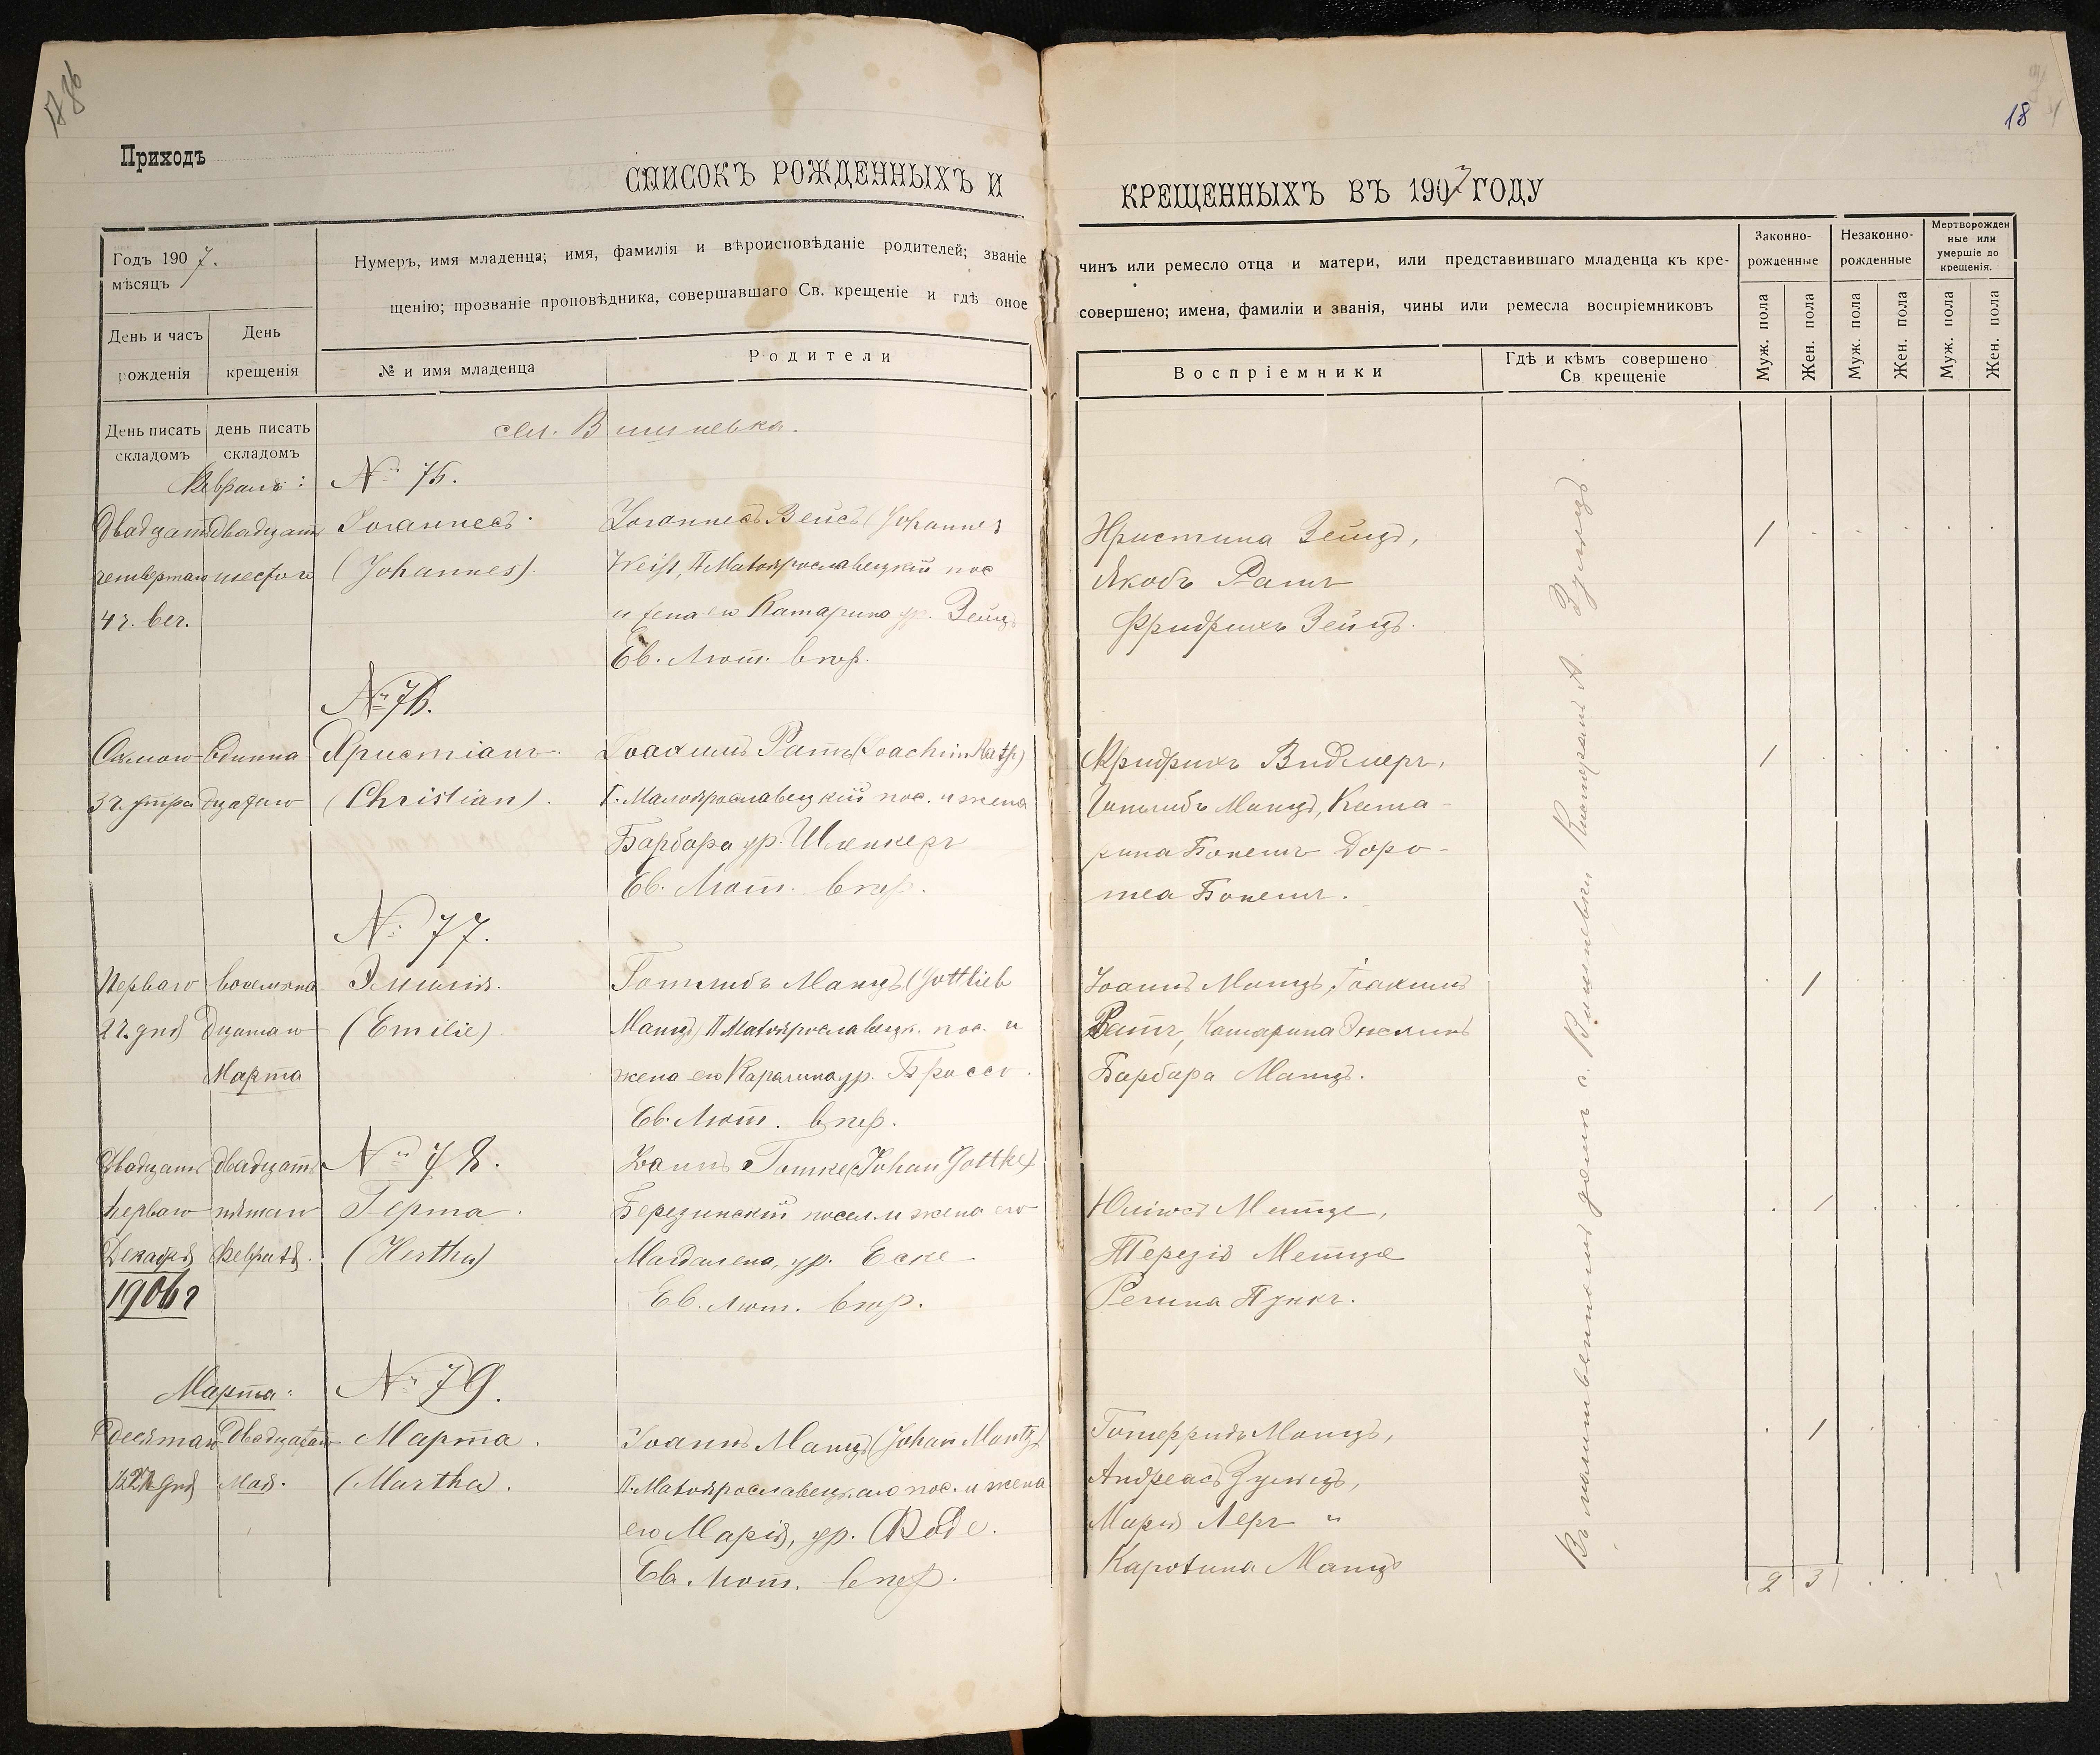 18
Приходъ
СПИСОКЪ РОЖДЕННЫХЪ И
КРЕЩЕННЫХЪ ВЪ 1907 ГОДУ
Годъ 1907.
мѣсяцъ
Нумеръ, имя младенца; имя, фамилія и вѣроисповѣданіе родителей; званіе
щенію; прозваніе проповѣдника, совершавшаго Св. крещеніе и гдѣ оное
чинъ или ремесло отца и матери, или представившаго младенца къ кре-
совершено; имена, фамиліи и званія, чины или ремесла воспріемниковъ
Законно-
рожденные
Незаконно-
рожденные
Мертворожден
ные или
умершіе до
крещенія.
День и часъ
рожденія
День
крещенія
№ и имя младенца
Родители
Воспріемники
Гдѣ и кѣмъ совершено
Св. крещеніе
Муж. пола
Жен. пола
Муж. пола
Жен. пола
Муж. пола
Жен. пола
День писать
складомъ
день писать
складомъ
сел. Вишневка.
Февраль:
№ 75.
Двадцать
четвертаго
4 ч. веч.
Двадцать
шестого
Іоганнесъ
(Johannes).
Іоганнесъ Вейсъ (Johannes
Weiß, II Малоярославецкій пос
и жена его Катарина ур. Зейцъ
Ев. Лют. вѣр.
Христина Зейцъ,
Якобъ Ратъ
Фридрихъ Зейцъ.
1
№ 76.
Осмого
3 ч. утра
Одинна
дцатаго
Христіанъ
(Christian).
Іоахимъ Ратъ (Joachim Rath)
I. Малоярославецкій пос. и жена
Барбара ур. Шленкеръ
Ев. Лют. вѣр.
Фридрихъ Видмеръ,
Готлибъ Манцъ, Ката-
рина Бопешъ Доро-
теа Бопешъ.
1
№ 77.
Перваго
2 ч. дня
восемна
дцатаго
Марта
Эмилія.
(Emilie)
Готлибъ Манцъ (Gottlieb
Манцъ) II Малоярославецк. пос. и
жена его Каралина ур. Броссъ.
Ев. Лют. вѣр.
Іоаннъ Манцъ, Іоахимъ
Ратъ, Катарина Энслинъ
Барбара Манцъ.
1
№ 78.
Двадцать
перваго
Декабря
1906 г
двадцать
пятаго
Февраля.
Герта.
(Hertha)
Іоаннъ Готке (Johan Gottke)
Березинскій посел. и жена его
Магдалена, ур. Еске
Ев. Лют. вѣр.
Юліусъ Метце,
Терезія Метце
Регина Пункъ.
1
Марта:
№ 79.
Десятаго
12 ч. дня
Двадцатаго
Мая.
Марта.
(Martha).
Іоаннъ Манцъ (Johan Mantz)
II. Малоярославецкаго пос. и жена
его Марія, ур. Роде.
Ев. Лют. вѣр.
Готфридъ Манцъ,
Андреасъ Зульцъ,
Марія Леръ и
Каролина Манцъ
1
Въ молитвенномъ домѣ с. Вишневки Кистеромъ А. Зульцъ
2 3